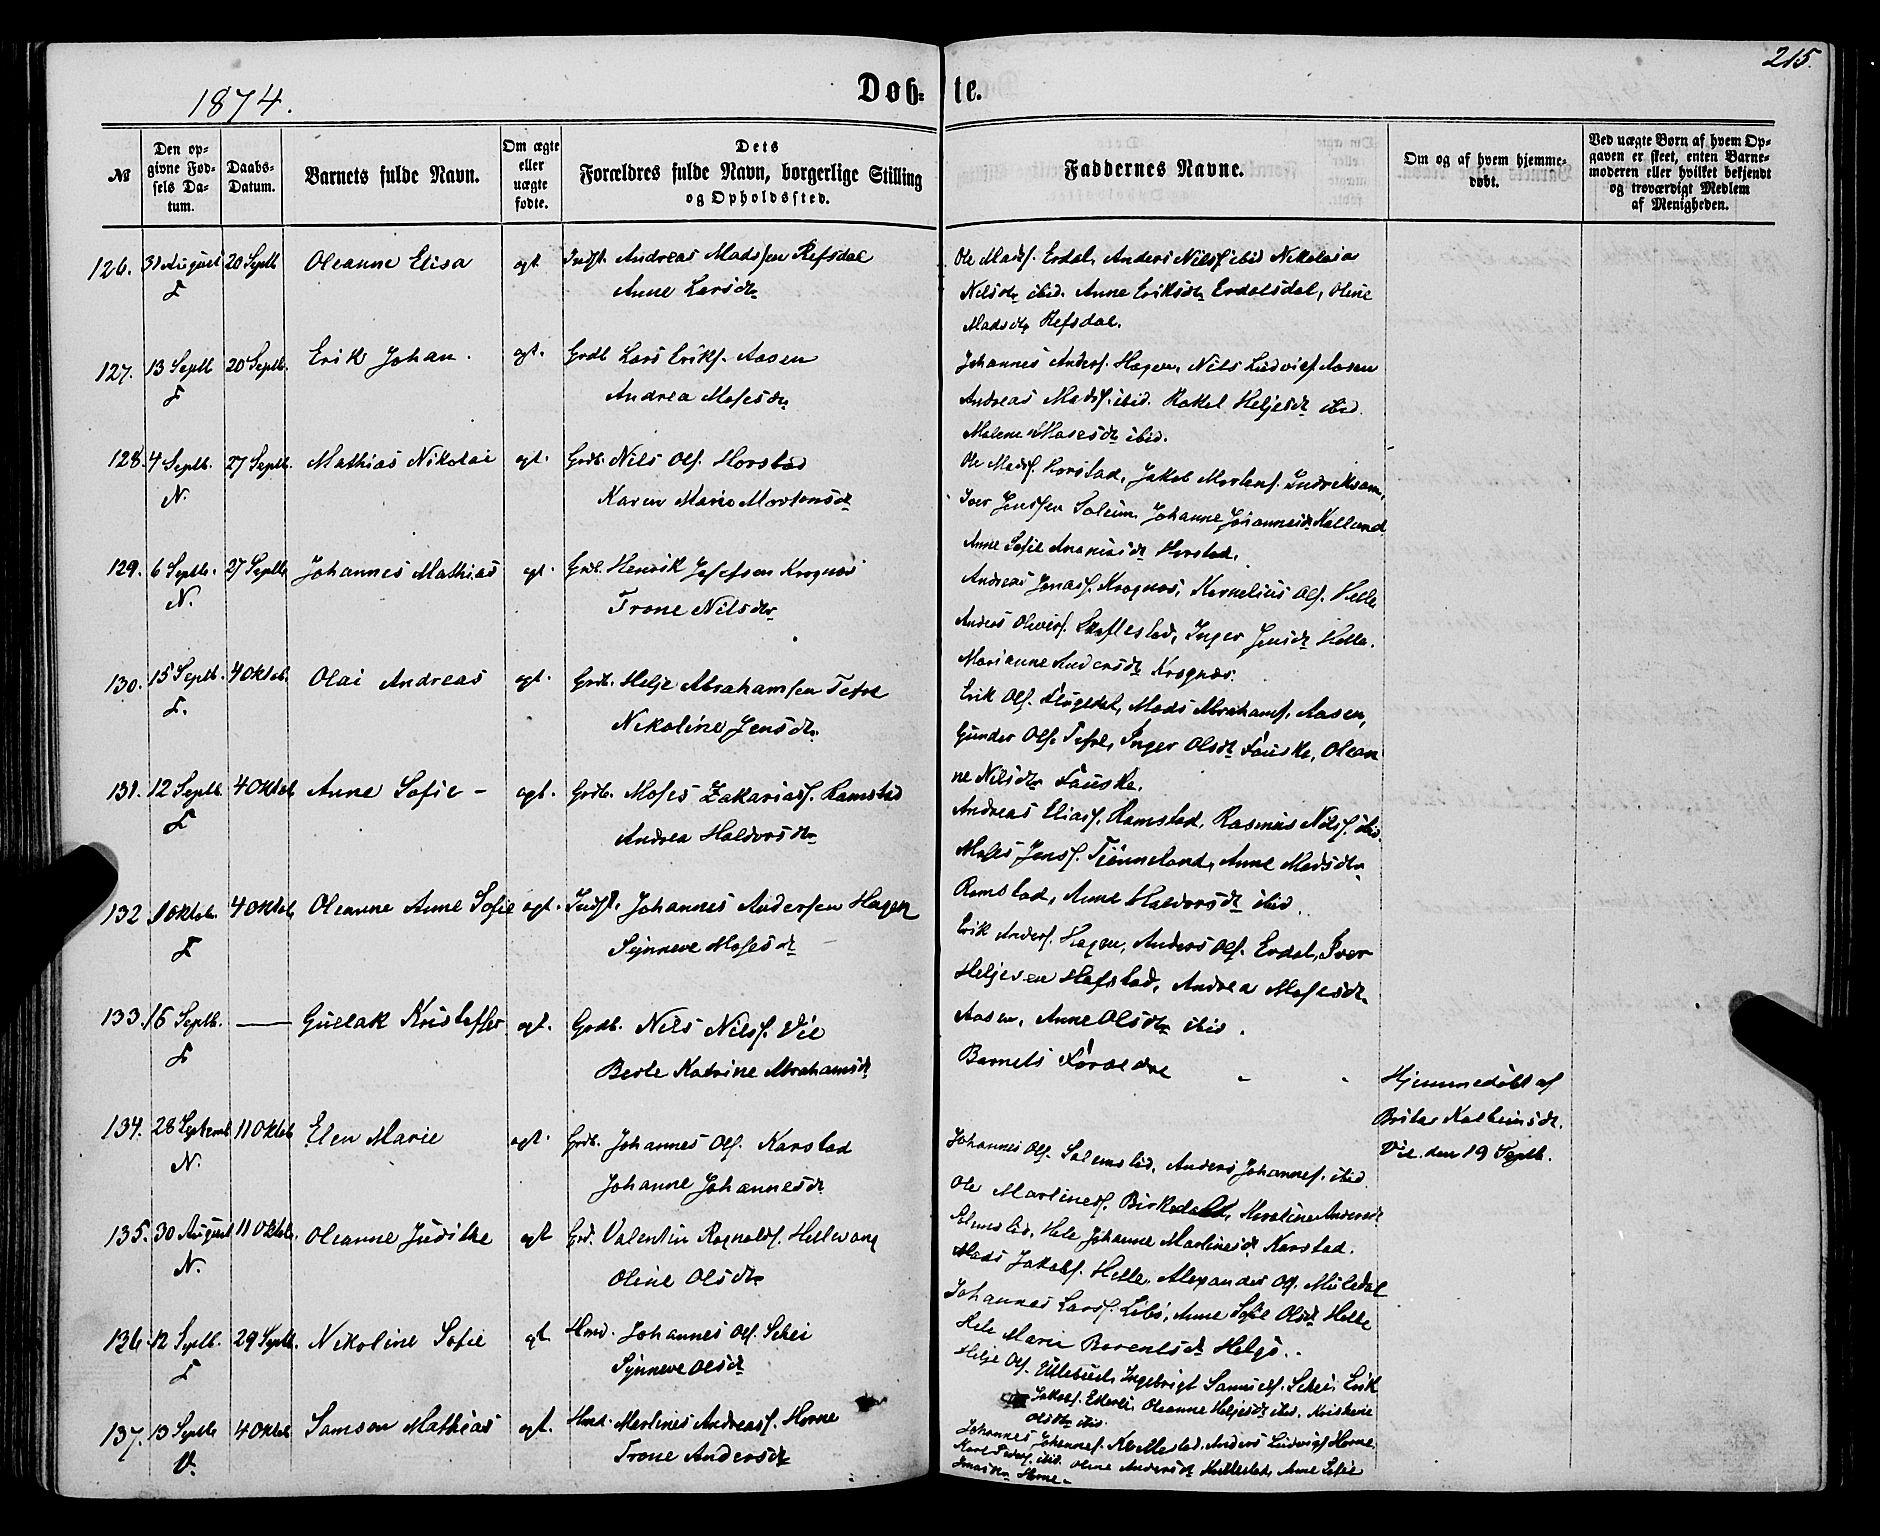 215.
1874.
Døb-te.
№
Den opgivne Fødsels Datum.
Daabs-Datum.
Barnets fulde Navn.
Om ægte eller uægte fødte.
Dets Forældres fulde Navn, borgerlige Stilling og Opholdssted.
Faddernes Navne.
Om og af hvem hjemmedøbt.
Ved uægte Børn af hvem Opgaven er skeet, enten Barnemoderen eller hvilket bekjendt og troværdigt Medlem af Menigheden.
126. 31 August 20 Septb Oleanne Elisa egt. Indst. Andreas Madssen Refsdal
F Anne Larsdtr
Ole Madss. Erdal, Anders Nilss. ibid Nikolaia
Nilsdtr ibid. Anne Eriksdtr Erdalsdal, Oline
Madsdtr Refsdal.
127. 13 Septb 20 Septb. Erik Johan. egt. Grdb Lars Eriks. Aasen
F Andrea Mosesdtr
Johannes Anders. Hagen, Nils Ludvigs. Aasen
Andreas Madss. ibid. Rakel Heljesdtr ibid.
Malene Mosesdtr ibid.
128. 4 Septb. 27 Septb. Mathias Nikolai egt. Grdb. Nils Ols. Horstad
N. Karen Marie Mortensdtr
Ole Madss. Horstad, Jakob Mortens. Indrekvam,
Iver Jenssen Soleim, Johanne Johannesdtr Kalland
Anne Sofie Ananiasdtr Horstad.
129. 6 Septb. 27 Septb Johannes Mathias egt. Grdb. Henrik Josefsen Krognæs
N. Trone Nilsdtr
Andreas Jonass. Krognæs, Kornelius Ols. Helle
Anders Olivers. Skaflestad, Inger Jensdtr Helle.
Marianne Andersdtr Krognæs.
130. 15 Septb. 4 Oktob. Olai Andreas egt. Grdb. Helje Abrahamsen Tefre
F. Nikoline Jensdtr
Erik Ols. Flugedal, Mads Abrahams. Aasen,
Gunder Ols. Tefre, Inger Olsdtr Fauske, Olean
ne Nilsdtr Fauske.
131. 12 Septb. 4 Oktob Anne Sofie - egt. Grdb. Moses Zakariass. Ramstad
F Andrea Haldorsdtr
Andreas Eliass. Ramstad, Rasmus Nilss. ibid.
Moses Jenss. Tjønneland, Anne Madsdtr
Ramstad, Anne Haldorsdtr ibid.
132 1 Oktob. 4 Oktob Oleanne Anne Sofie egt. Indst. Johannes Andersen Hagen
F Synneve Mosesdtr
Erik Anders. Hagen, Anders Ols. Erdal, Iver
Heljesen Hafstad, Andrea Mosesdtr
Aasen, Anne Olsdtr ibid.
133. 16 Septb. — Gullak Kristoffer egt. Grdb. Nils Nilss. Vie
F Berte Katrine Abrahamsdtr
Barnets Forældre " "
Hjemmedøbt af
Brita Kolbeinsdtr.
Vie. den 19 Septb.
134. 28 Septemb 11 Oktob Elen Marie egt. Grdb. Johannes Ols. Karstad
N. Johanne Johannesdtr
Johannes Ols. Solemslid, Anders Johanness. ibid.
Ole Martiness. Birkedal, Karoline Andersdtr
Hele Johanne Martinesdtr Karstad.
135. 30 August 11 Oktob. Oleanne Judithe egt Grd. Valentin Ragnalds. Hellevang
N. Oline Olsdtr
Mads Jakobs. Helle, Alexander Ols. Muledal
Johannes Larss. Libø, Anne Sofie Olsdtr Helle
Hele Marie Berentsdtr Helgø.
136. 12 Septb. 29 Septb. Nikoline Sofie egt Hmd. Johannes Ols. Schei
F Synneve Olsdtr
Helje Ols. Utlebust, Ingebrigt Samuels. Schei, Erik
Jakobs. Oleanne Heljesdtr ibid. Kristine
Olsdtr ibid.
137. 13 Septb 4 Oktob Samson Mathias egt. Hmd. Martines Andreass. Horne
V. Trone Andersdtr
Johannes Johanness. Kvellestad, Anders Ludvigs. Horne,
ibid. Oline Andersdtr Anne Sofie
Horne -